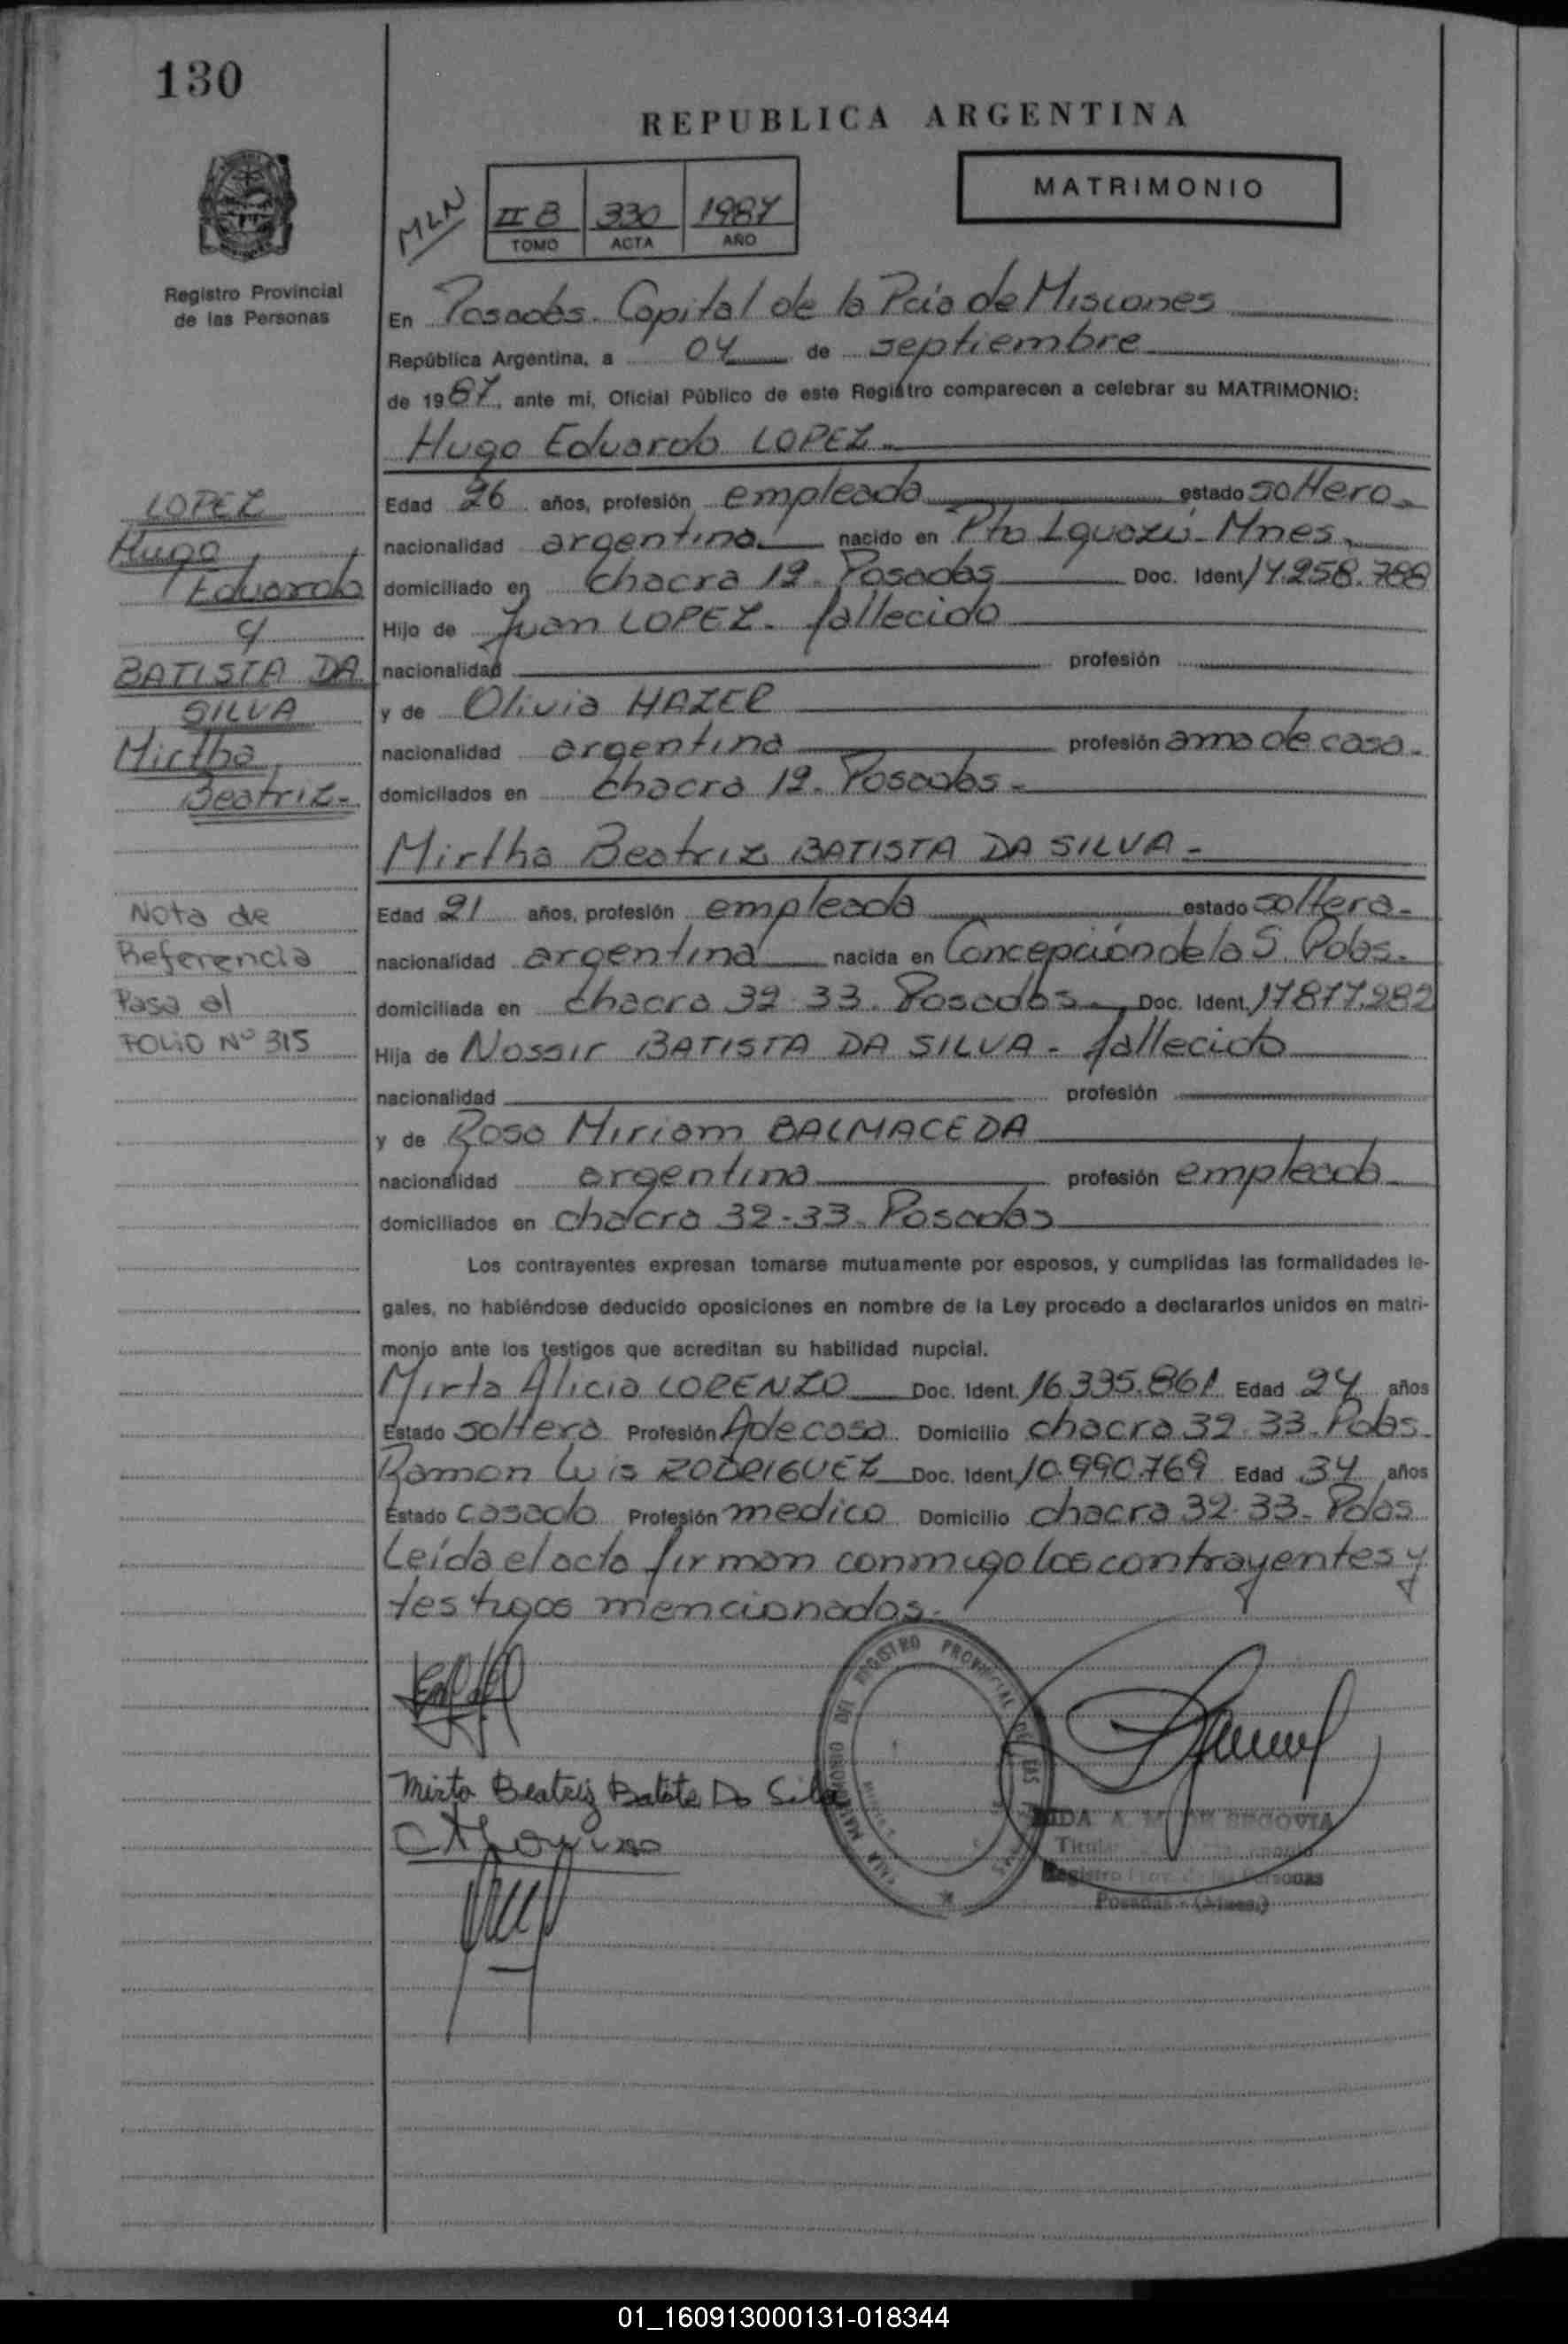 130
REPUBLICA ARGENTINA
MATRIMONIO
MLN
II B 330 1987
TOMO ACTA AÑO
Registro Provincial
de las Personas
En Posadas. Capital de la Pcia de Misiones
República Argentina, a 04 de septiembre
de 1987, ante mí, Oficial Público de este Registro comparecen a celebrar su MATRIMONIO:
Hugo Eduardo LOPEZ
LOPEZ
Hugo
Eduardo
c/
BATISTA DA
SILVA
Mirtha
Beatriz.-
Edad 26 años, profesión empleado estado soltero.
nacionalidad argentina nacido en Pto Iguazú. Mnes.
domiciliado en chacra 19. Posadas Doc. Ident. 14.258.788
Hijo de Juan LOPEZ. fallecido
nacionalidad profesión
y de Olivia
nacionalidad argentina profesión ama de casa.
domiciliados en chacra 19. Posadas.
Mirtha Beatriz BATISTA DA SILVA.
Nota de
Referencia
Pasa al
FOLIO Nº 315
Edad 21 años, profesión empleada estado soltera.
nacionalidad argentina nacida en Concepción de la S. Pdas.
domiciliada en chacra 32-33. Posadas. Doc. Ident. 17.877.282
Hija de Nossir BATISTA DA SILVA. fallecido
nacionalidad profesión
y de Rosa Miriam BALMACEDA
nacionalidad argentina profesión empleada
domiciliados en chacra 32-33. Posadas
Los contrayentes expresan tomarse mutuamente por esposos, y cumplidas las formalidades le-
gales, no habiéndose deducido oposiciones en nombre de la Ley procedo a declararlos unidos en matri-
monio ante los testigos que acreditan su habilidad nupcial.
Mirta Alicia LORENZO Doc. Ident. 16.335.861 Edad 24 años
Estado soltera Profesión A de casa Domicilio chacra 32-33. Pdas.
Ramon Luis RODRIGUEZ Doc. Ident. 10.990.769 Edad 34 años
Estado casado Profesión medico Domicilio chacra 32-33. Pdas
Leída el acta firman conmigo los contrayentes y
testigos mencionados.
Mirta Beatriz Batista Da Silva
DEL REGISTRO PROVINCIAL DE LAS
SEGOVIA
Titular
Registro Prov. de las Personas
Posadas - (Mnes.)
01_160913000131-018344